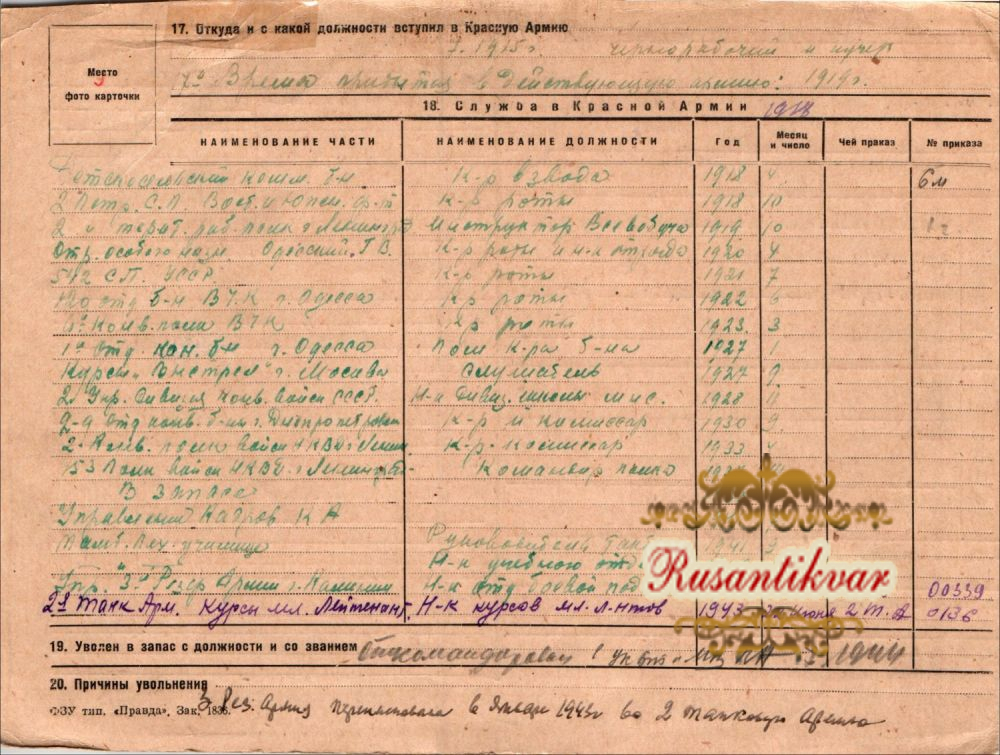 17. Откуда и с какой должности вступил в Красную Армию
Место
фото карточки
с 1915 г. чернорабочий и кучер
Время прибытия в Действующую армию: 1919 г.
18. Служба в Красной Армии 1918
НАИМЕНОВАНИЕ ЧАСТИ НАИМЕНОВАНИЕ ДОЛЖНОСТИ Год Месяц и число Чей приказ № приказа
Детскосельский б-н К-р взвода 1918 4 6 м
2 Петр. С.П. К-р роты 1918 10
2 й террит. раб. полк г. Ленинград Инструктор Всевобуча 1919 10 1 г
Отр. особого назн. Одесский Г.В. К-р роты и н-к отряда 1920 4
542 С.П. УССР К-р роты 1921 7
отд б-н ВЧК г. Одесса К-р роты 1922 6
Конв. полк ВЧК К-р роты 1923 3
1й Отд. кон. б-н г. Одесса Пом к-ра б-на 1927 1
Курсы „Выстрел" г. Москва слушатель 1927 9
2. Упр. Дивизия конв. войск СССР. Н-к дивиз. школы м.н.с. 1928 11
2-й отд конв. б-н г. Днепропетровск К-р и комиссар 1930 9
2- Конв. полк войск НКВД г. Ленин К-р. комиссар 1933 4
153 Полк войск НКВД г. Ленинград Командир полка
В запасе
Управления Кадров КА
Тамб. Пех. училище Руководитель такт 1941
Н-к учебного отд
Упр. 3й Резер Армии г. Калинин Н-к отд боевой под 00339
2я Танк Арм. Курсы мл. Лейтенант. Н-к курсов мл. л-нтов 1943 июня 2 Т. А 0136
19. Уволен в запас с должности и со званием Откомандирован в 1944
20. Причины увольнения
3 Рез. Армия переименована в Январе 1943г во 2 танковую Армию
ФЗУ тип. «Правда». Зак. 1836.
Rusantikvar